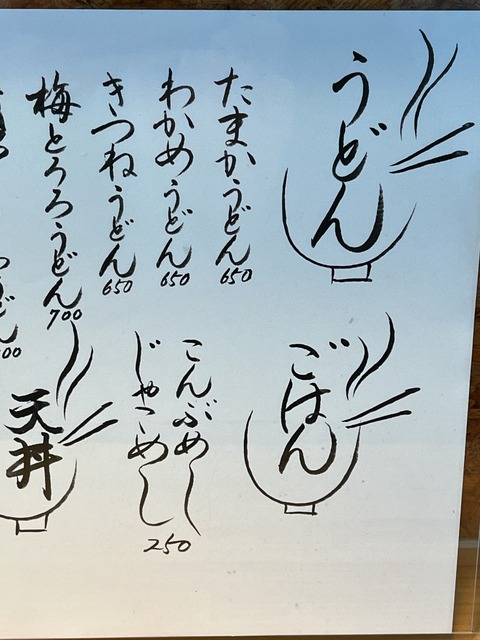 うどん
たまかうどん
650
わかめうどん
650
きつねうどん
650
梅とろろうどん
700
ごはん
こんぶめし
じゃこめし
250
天丼